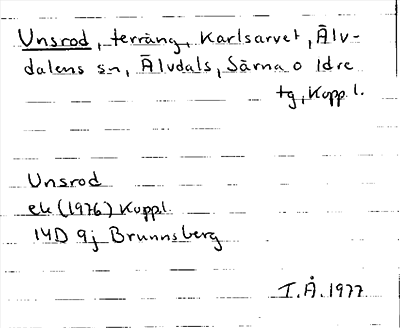 Unsrod, terräng, Karlsarvet, Älv-
dalens sn, Älvdals, Särna o Idre
tg, Kopp. l.
Unsrod
ek (1976) Koppl.
14D 9j Brunnsberg
T.Å. 1977